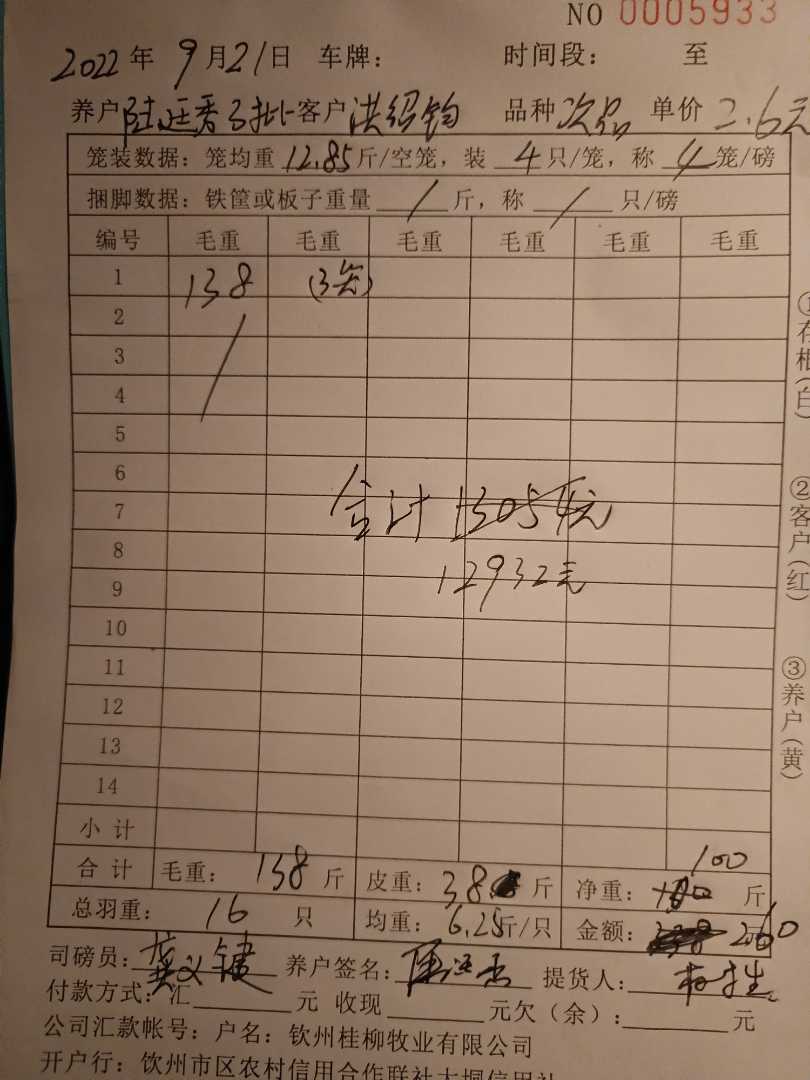 NO 0005933
2022年 9月21日 车牌： 时间段： 至
养户 陆廷秀3批 客户 洪绍钧 品种 次品 单价 2.6元
笼装数据：笼均重 12.85 斤/空笼，装 4 只/笼，称 4 笼/磅
捆脚数据：铁筐或板子重量 / 斤，称 / 只/磅
编号 毛重 毛重 毛重 毛重 毛重 毛重
1 138 (3笼)
2
3
4
5
6
7
合计 13054元
8
12932元
9
10
11
12
13
14
小计
合计 毛重：138 斤 皮重：38 斤 净重：100 斤
总羽重：16 只 均重：6.25斤/只 金额：260 元
司磅员： 养户签名： 提货人：
付款方式：汇 元 收现 元欠（余）： 元
公司汇款帐号：户名：钦州桂柳牧业有限公司
开户行：钦州市区农村信用合作联社大垌信用社
①存根（白）
②客户（红）
③养户（黄）